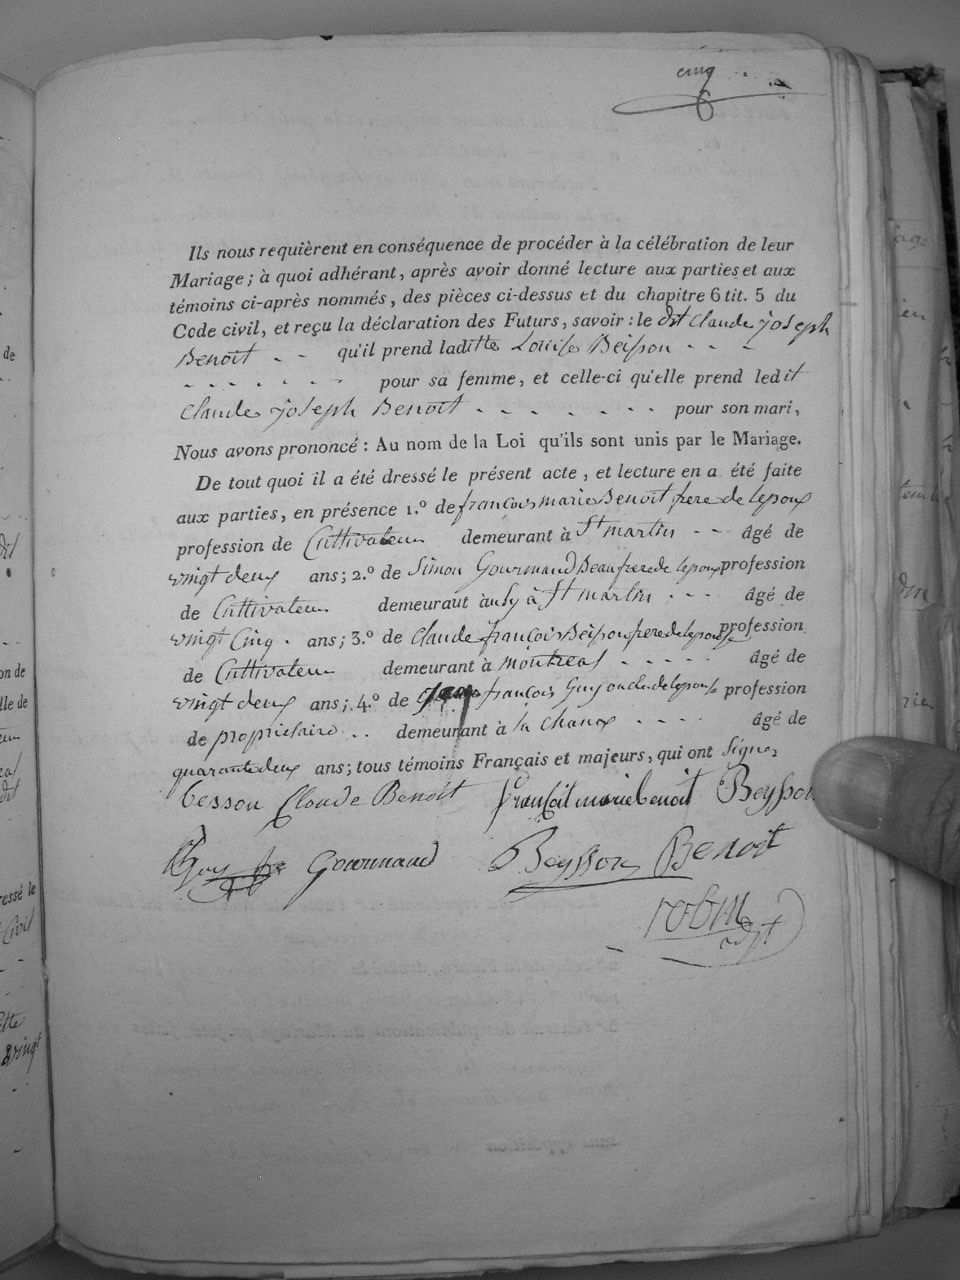 cinq
6
Ils nous requièrent en conséquence de procéder à la célébration de leur
Mariage ; à quoi adhérant, après avoir donné lecture aux parties et aux
témoins ci-après nommés, des pièces ci-dessus et du chapitre 6 tit. 5 du
Code civil, et reçu la déclaration des Futurs, savoir : le dit Claude joseph
Benoit - - qu'il prend laditte Louise Beisson - - -
- - - - - - - pour sa femme, et celle-ci qu'elle prend ledit
Claude joseph Benoit - - - - - - - pour son mari,
Nous avons prononcé : Au nom de la Loi qu'ils sont unis par le Mariage.
De tout quoi il a été dressé le présent acte, et lecture en a été faite
aux parties, en présence 1.º de françois marie Benoit frere de lepoux
profession de Cultivateur demeurant à St martin - - âgé de
vingt deux ans ; 2.º de Simon Gourmand Beaufrere de lepoux profession
de Cultivateur demeurant à St martin - - - âgé de
vingt Cinq - ans ; 3.º de Claude françois Beisson frere de lepouse profession
de Cultivateur demeurant à montreal - - - - - âgé de
vingt deux ans ; 4.º de françois Guy oncle de lepouse profession
de propriétaire - - demeurant à la Chanox - - - - âgé de
quarante deux ans ; tous témoins Français et majeurs, qui ont Signer
besson Claude Benoit françoit marie benoit Beysson
Guy Gourmand Beysson Benoit
robin
adjt